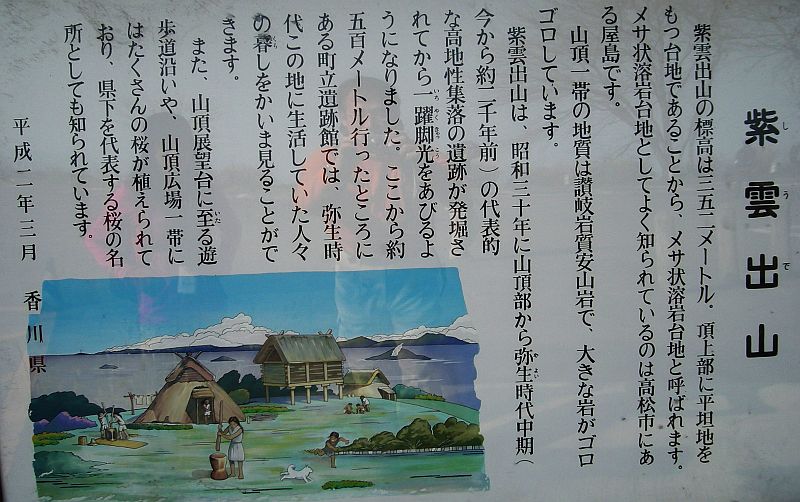 紫雲出山
し う で
紫雲出山の標高は三五二メートル。頂上部に平坦地を
もつ台地であることから、メサ状溶岩台地と呼ばれます。
メサ状溶岩台地としてよく知られているのは高松市にあ
る屋島です。
山頂一帯の地質は讃岐岩質安山岩で、大きな岩がゴロ
ゴロしています。
紫雲出山は、昭和三十年に山頂部から弥生時代中期（
やよい
今から約二千年前）の代表的
な高地性集落の遺跡が発掘さ
れてから一躍脚光をあびるよ
いちやくきゃっこう
うになりました。ここから約
五百メートル行ったところに
ある町立遺跡館では、弥生時
代この地に生活していた人々
の暮しをかいま見ることがで
くら
きます。
また、山頂展望台に至る遊
いた
歩道沿いや、山頂広場一帯に
はたくさんの桜が植えられて
おり、県下を代表する桜の名
所としても知られています。
平成二年三月 香川県